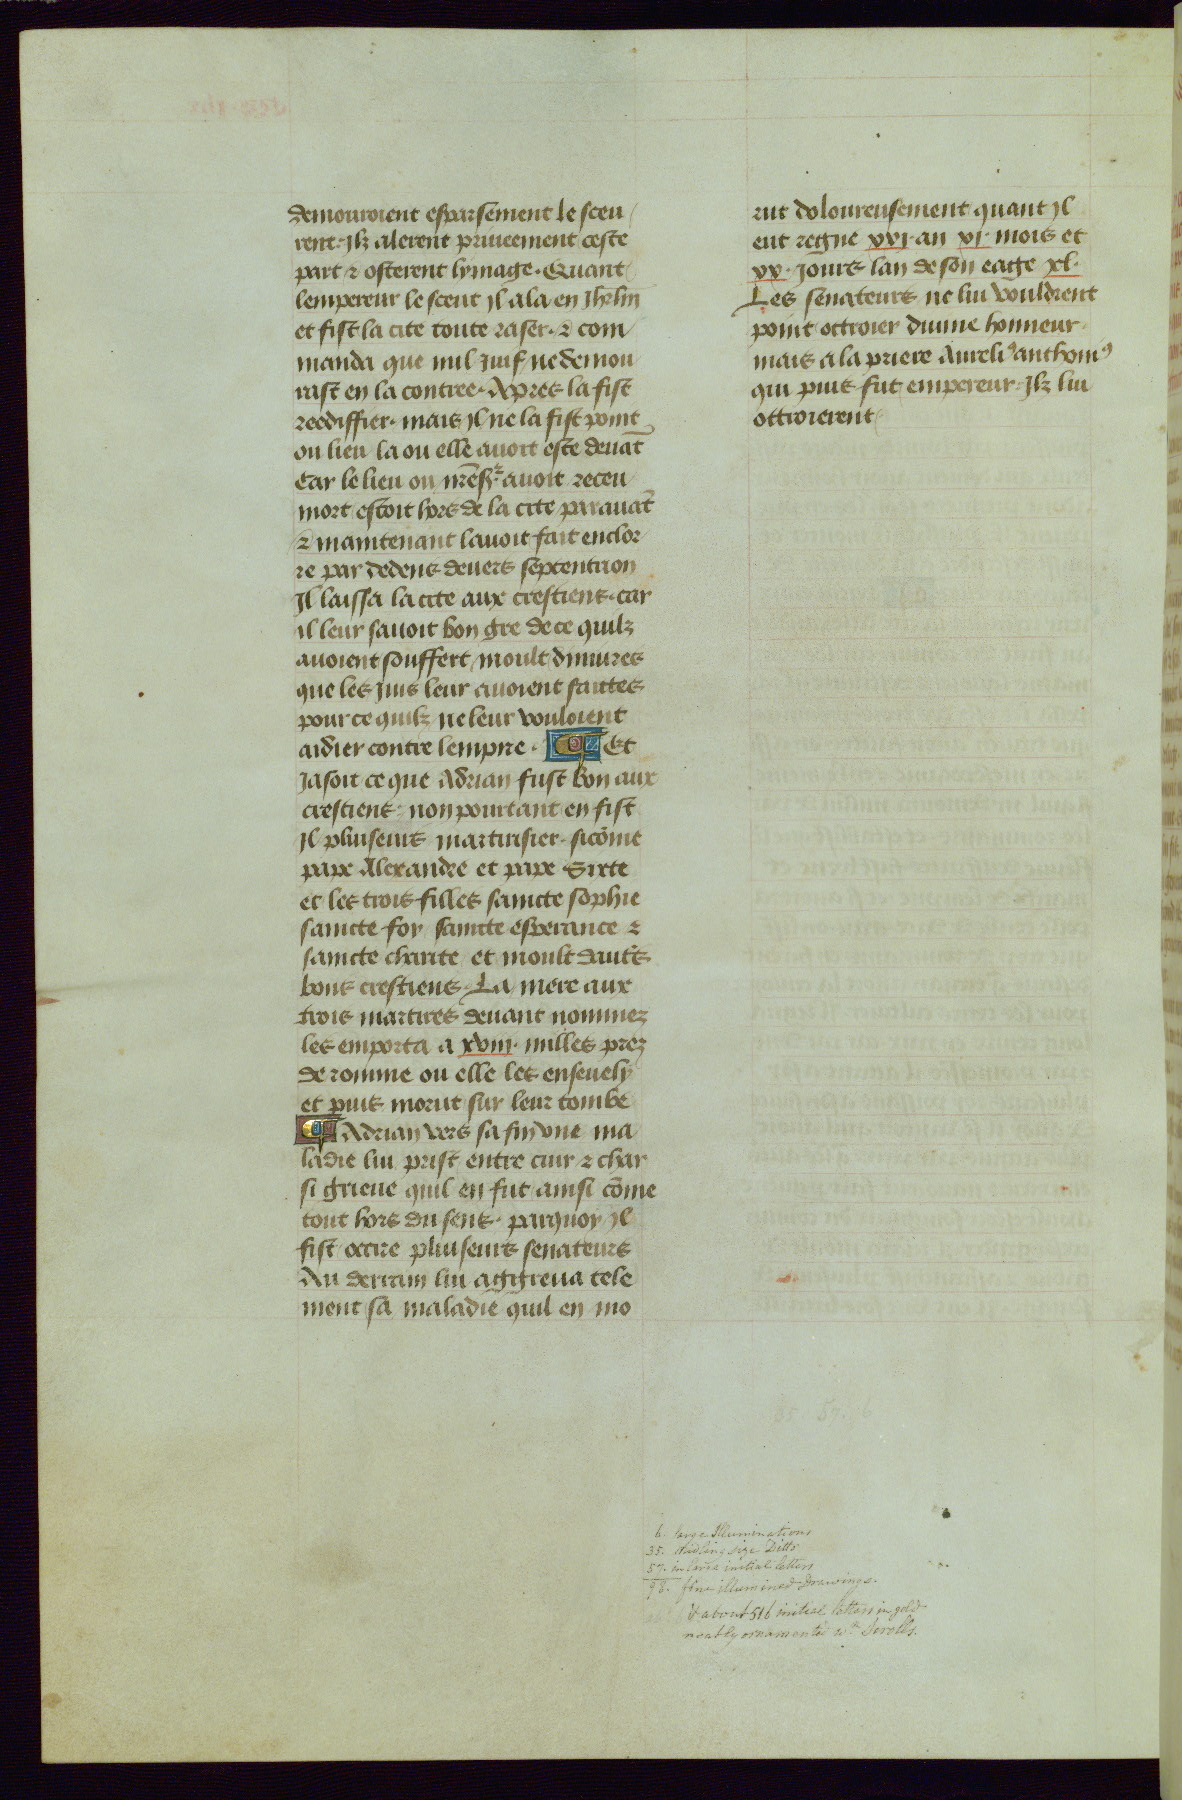 demouroient esparsement le sceu
rent. Ilz alerent priveement ceste
part ⁊ osterent lymage. Quant
lempereur le sceut Il ala en Jhrlm̄
et fist la cite toute raser. ⁊ com
manda que nul Juif ne demou
rast en la contree. Apres la fist
reediffier. mais Il ne la fist point
ou lieu la ou elle avoit este devāt
Car le lieu ou nr̄es.ʳ avoit receu
mort estoit hors de la cite paravāt
⁊ maintenant lavoit fait enclor
re par dedens devers septentrion
Il laissa la cite aux crestiens. car
il leur savoit bon gre de ce quilz
avoient souffert moult dinjures
que les Juis leur avoient faittes
pour ce quilz ne leur vouloient
aidier contre lempire. ¶ Et
Jasoit ce que Adrian fust bon aux
crestiens. non pourtant en fist
Il pluiseurs martirisier. sicōme
pape Alexandre et pape Sixte
et les trois filles saincte sophie
saincte foy saincte esperance ⁊
saincte charite et moult daut̄s
bons crestiens. La mere aux
trois martires devant nommez
les emporta a xviii. milles prez
de romme ou elle les ensevely
et puis morut sur leur tombe
¶ Adrian vers sa fin une ma
ladie lui prist entre cuir ⁊ char
si grieve quil en fut ainsi cōme
tout hors du sens. parquoy Il
fist occire pluiseurs senateurs
Au derrain lui aggreva tele
ment sa maladie quil en mo
rut doloureusement quant Il
eut regne xxi. an xi. mois et
xx. Jours lan de son eage xl.
Les senateurs ne lui vouldrent
point ottroier divine honneur.
mais a la priere Aureliꝰ anthoniꝰ
qui puis fut empereur. Ilz lui
ottroierent
6. large Illuminations
35. Midling size Ditto
57. in large initial letters
98. fine illumined Drawings.
& about 516 initial letters in gold
neatly ornamented wth. Scrolls.